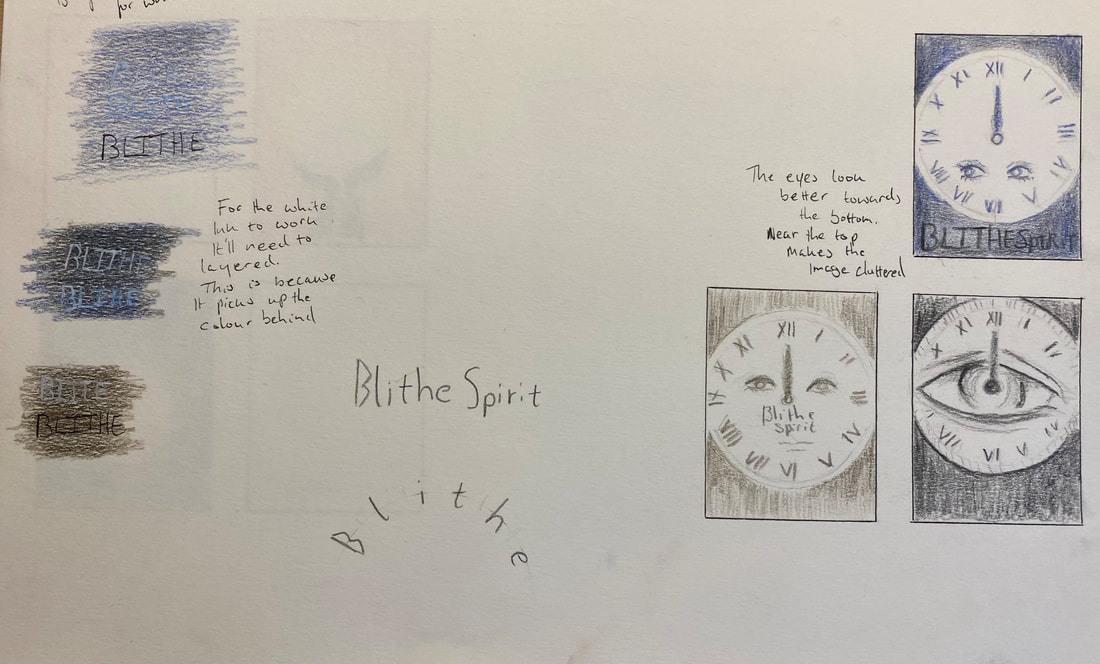 for
BLITHE
BLITHE
BLITHE
BLITHE
BLITHE
BLITHE
For the white
Ink to work
It'll need to
layered.
This is because
It picks up the
colour behind
Blithe Spirit
Blithe
The eyes look
better towards
the bottom.
Near the top
makes the
Image cluttered
XII
I
II
III
IV
V
VI
VII
VIII
IX
X
XI
BLITHE Spirit
XII
I
II
III
IV
V
VI
VII
VIII
IX
X
XI
Blithe
Spirit
XII
I
II
IV
V
VI
VII
X
XI